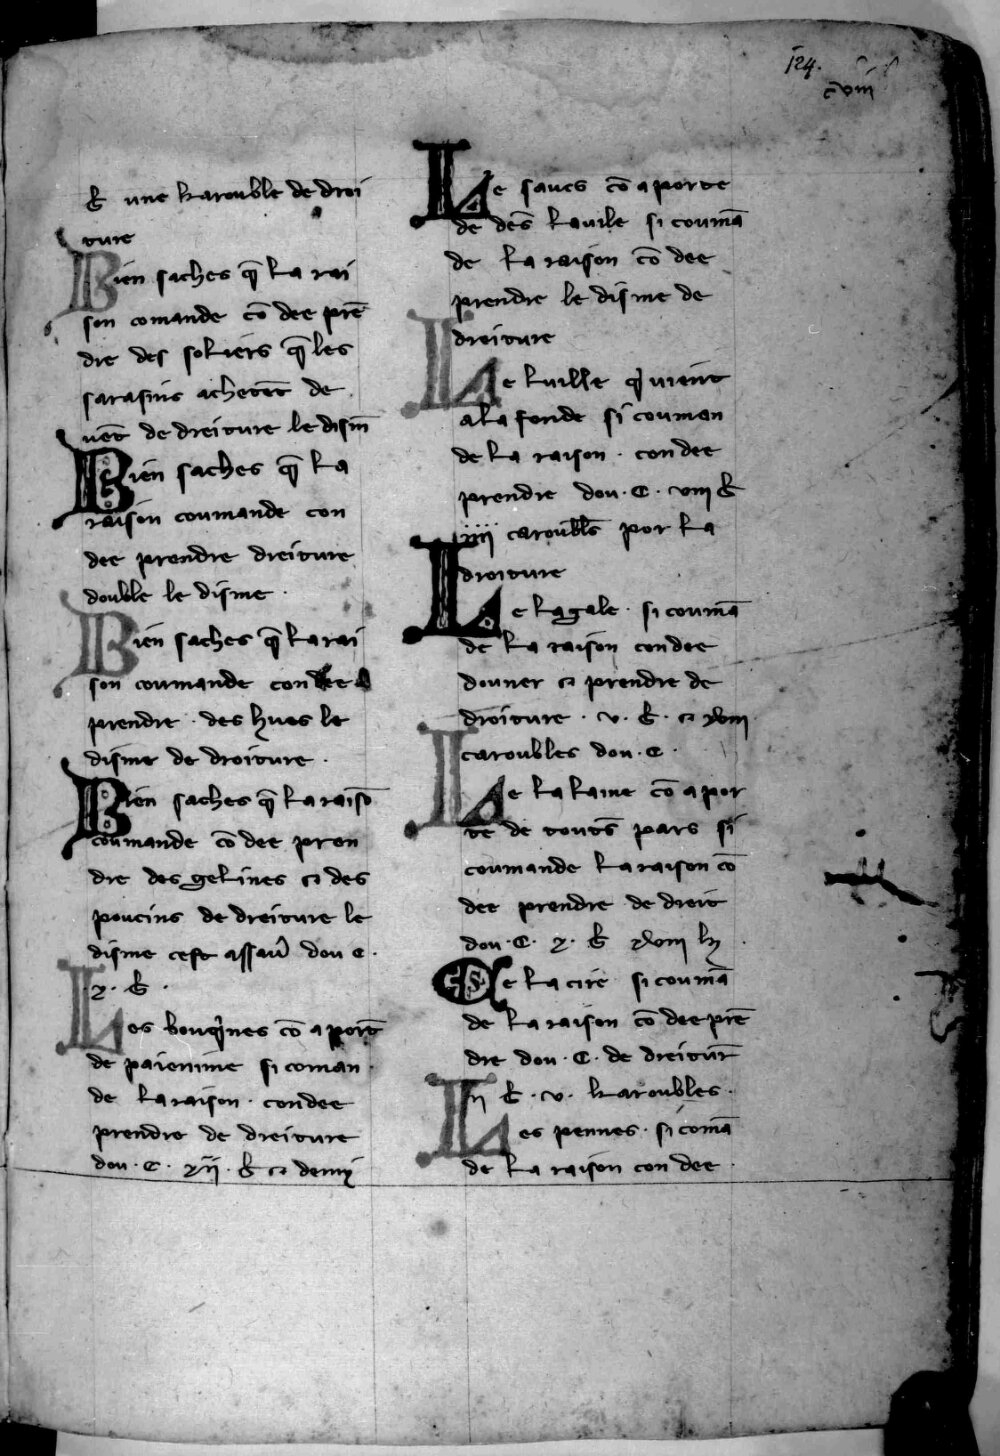 124.
cviii
b une karouble de droi
ture
Bien saches q̄ la rai
son comande cō dee prē
dre des soliers q̄ les
sarasins achetēt de
uēt de dreiture le dism̄
Bien saches q̄ la
raison coumande con
dee prendre dreiture
double le disme .
Bien saches q̄ la rai
son coumande con dee
prendre . des hues le
disme de droiture .
Bien saches q̄ la raisō
coumande cō dee pren
dre des gelines ⁊ des
poucins de dreiture le
disme cest assau̅ dou c .
.x. b .
Les bouq̄nes cō a port̄
de paienime si coman
de la raison . con dee
prendre de dreiture
dou . c . xii . b ⁊ demi
Le saucs cō aporte
de des̄ la uile si coumā
de la raison cō dee
prendre le disme de
dreiture
Le luille q̄ uient
a la fonde si couman
de la raison . con dee
prendre dou . c . viii b
iiii caroubl̄s por la
droiture
Le lagale . si coumā
de la raison con dee
douner ⁊ prendre de
droiture . v . b . ⁊ xviii
caroubles dou . c .
Le la laine cō a por
te de tout̄s pars si
coumande la raison cō
dee prendre de dreit
dou . c . x . b xviii
De la cire si coumā
de la raison cō dee prē
dre dou . c . de dreitur̄
b . v . karoubles .
Les pennes . si comā
de la raison con dee .